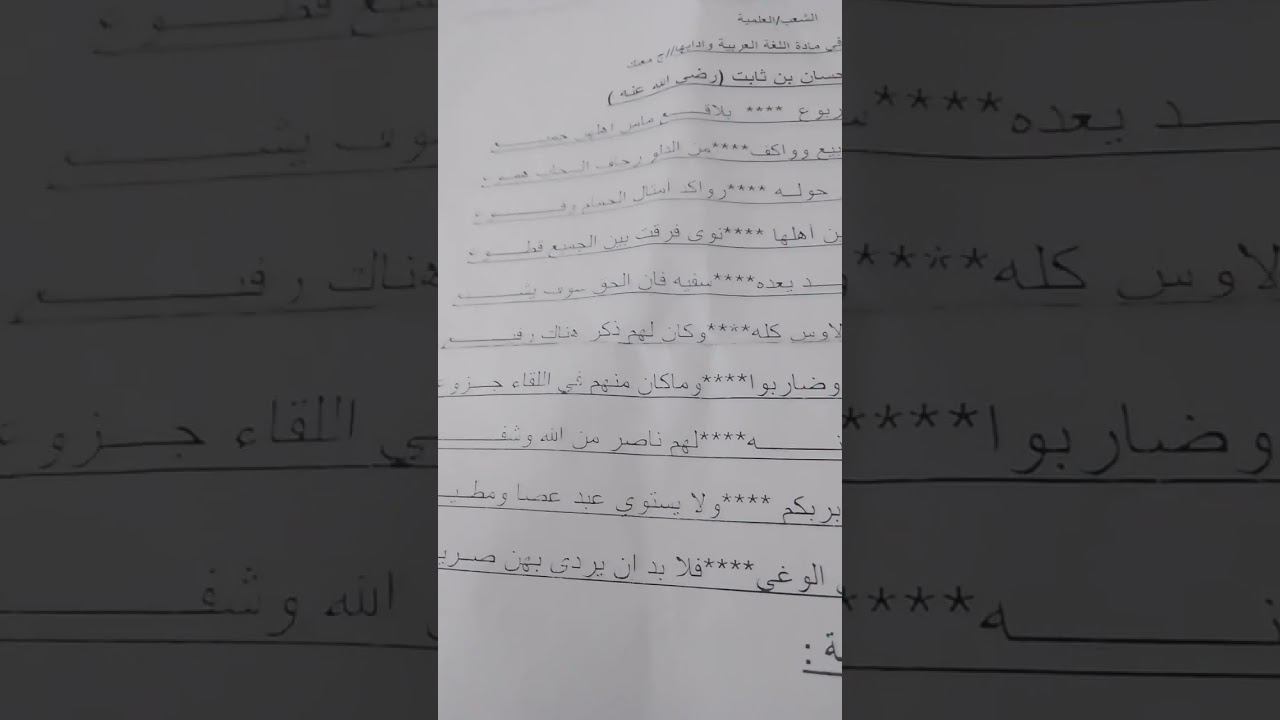 الشعب/العلمية
في مادة اللغة العربية وادابها//ج معك
حسان بن ثابت (رضي الله عنه )
ربوع **** بلاقع مامن اهلهن جميـــــع
بيع وواكف****من الدلو رجاف السحاب همـــوع
حولـه ****رواكد امثال الحمام وقـــــوع
ن اهلها ****نوى فرقت بين الجميع قطــــوع
ـد يعده****سفيه فان الحق سوف يشـــــ
لاوس كله****وكان لهم ذكر هناك رفيـــــع
وضاربوا****وماكان منهم في اللقاء جـــزوع
ـــه****لهم ناصر من الله وشفـــــ
بربكم ****ولا يستوي عبد عصا ومطيـ
الوغى****فلا بد ان يردى بهن صريـ
ة :